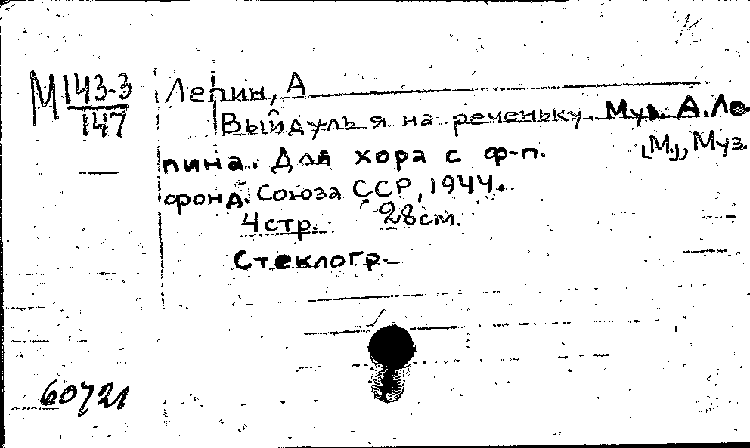 М 143-3
147
Лепин, А
Выйдуль я на реченьку. Муз. А. Ле
пина. Для хора с ф-п.
[М], Муз.
фонд. Союза ССР, 1944.
4 стр. 28 см.
Стеклогр.
60721